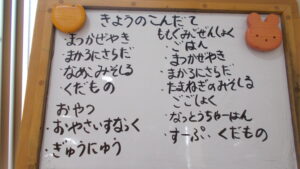 きょうのこんだて
・まつかぜやき
・まかろにさらだ
・なめこみそしる
・くだもの
おやつ
・おやさいすなっく
・ぎゅうにゅう
ももぐみ ぜんしょく
・ごはん
・まつかぜやき
・まかろにさらだ
・たまねぎのみそしる
ごごしょく
・なっとうちゃーはん
・すーぷ、くだもの